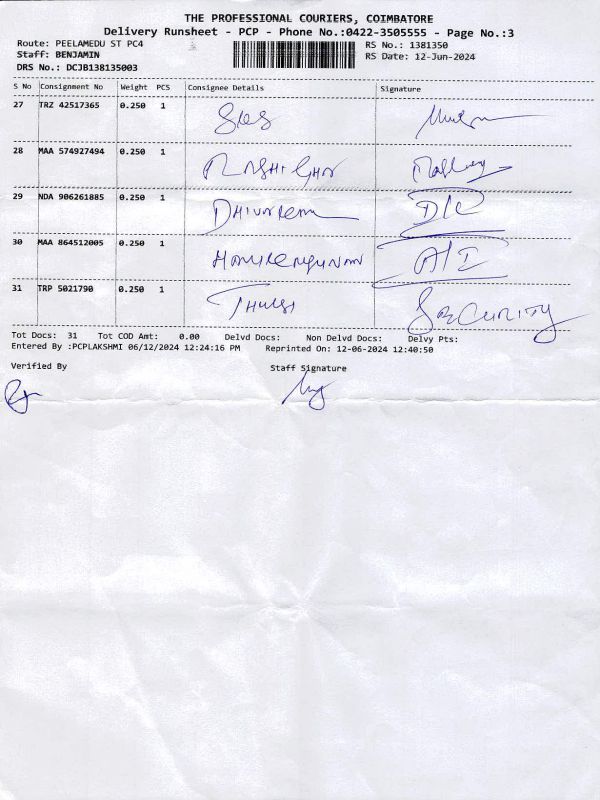 THE PROFESSIONAL COURIERS, COIMBATORE
Delivery Runsheet - PCP - Phone No.:0422-3505555 - Page No.:3
Route: PEELAMEDU ST PC4
RS No.: 1381350
Staff: BENJAMIN
RS Date: 12-Jun-2024
DRS No.: DCJB138135003
S No Consignment No Weight PCS Consignee Details Signature
27 TRZ 42517365 0.250 1
28 MAA 574927494 0.250 1
29 NDA 906261885 0.250 1 D/C
30 MAA 864512005 0.250 1 A/I
31 TRP 5021790 0.250 1 THULSI SECURITY
Tot Docs: 31 Tot COD Amt: 0.00 Delvd Docs: Non Delvd Docs: Delvy Pts:
Entered By :PCPLAKSHMI 06/12/2024 12:24:16 PM Reprinted On: 12-06-2024 12:40:50
Verified By Staff Signature